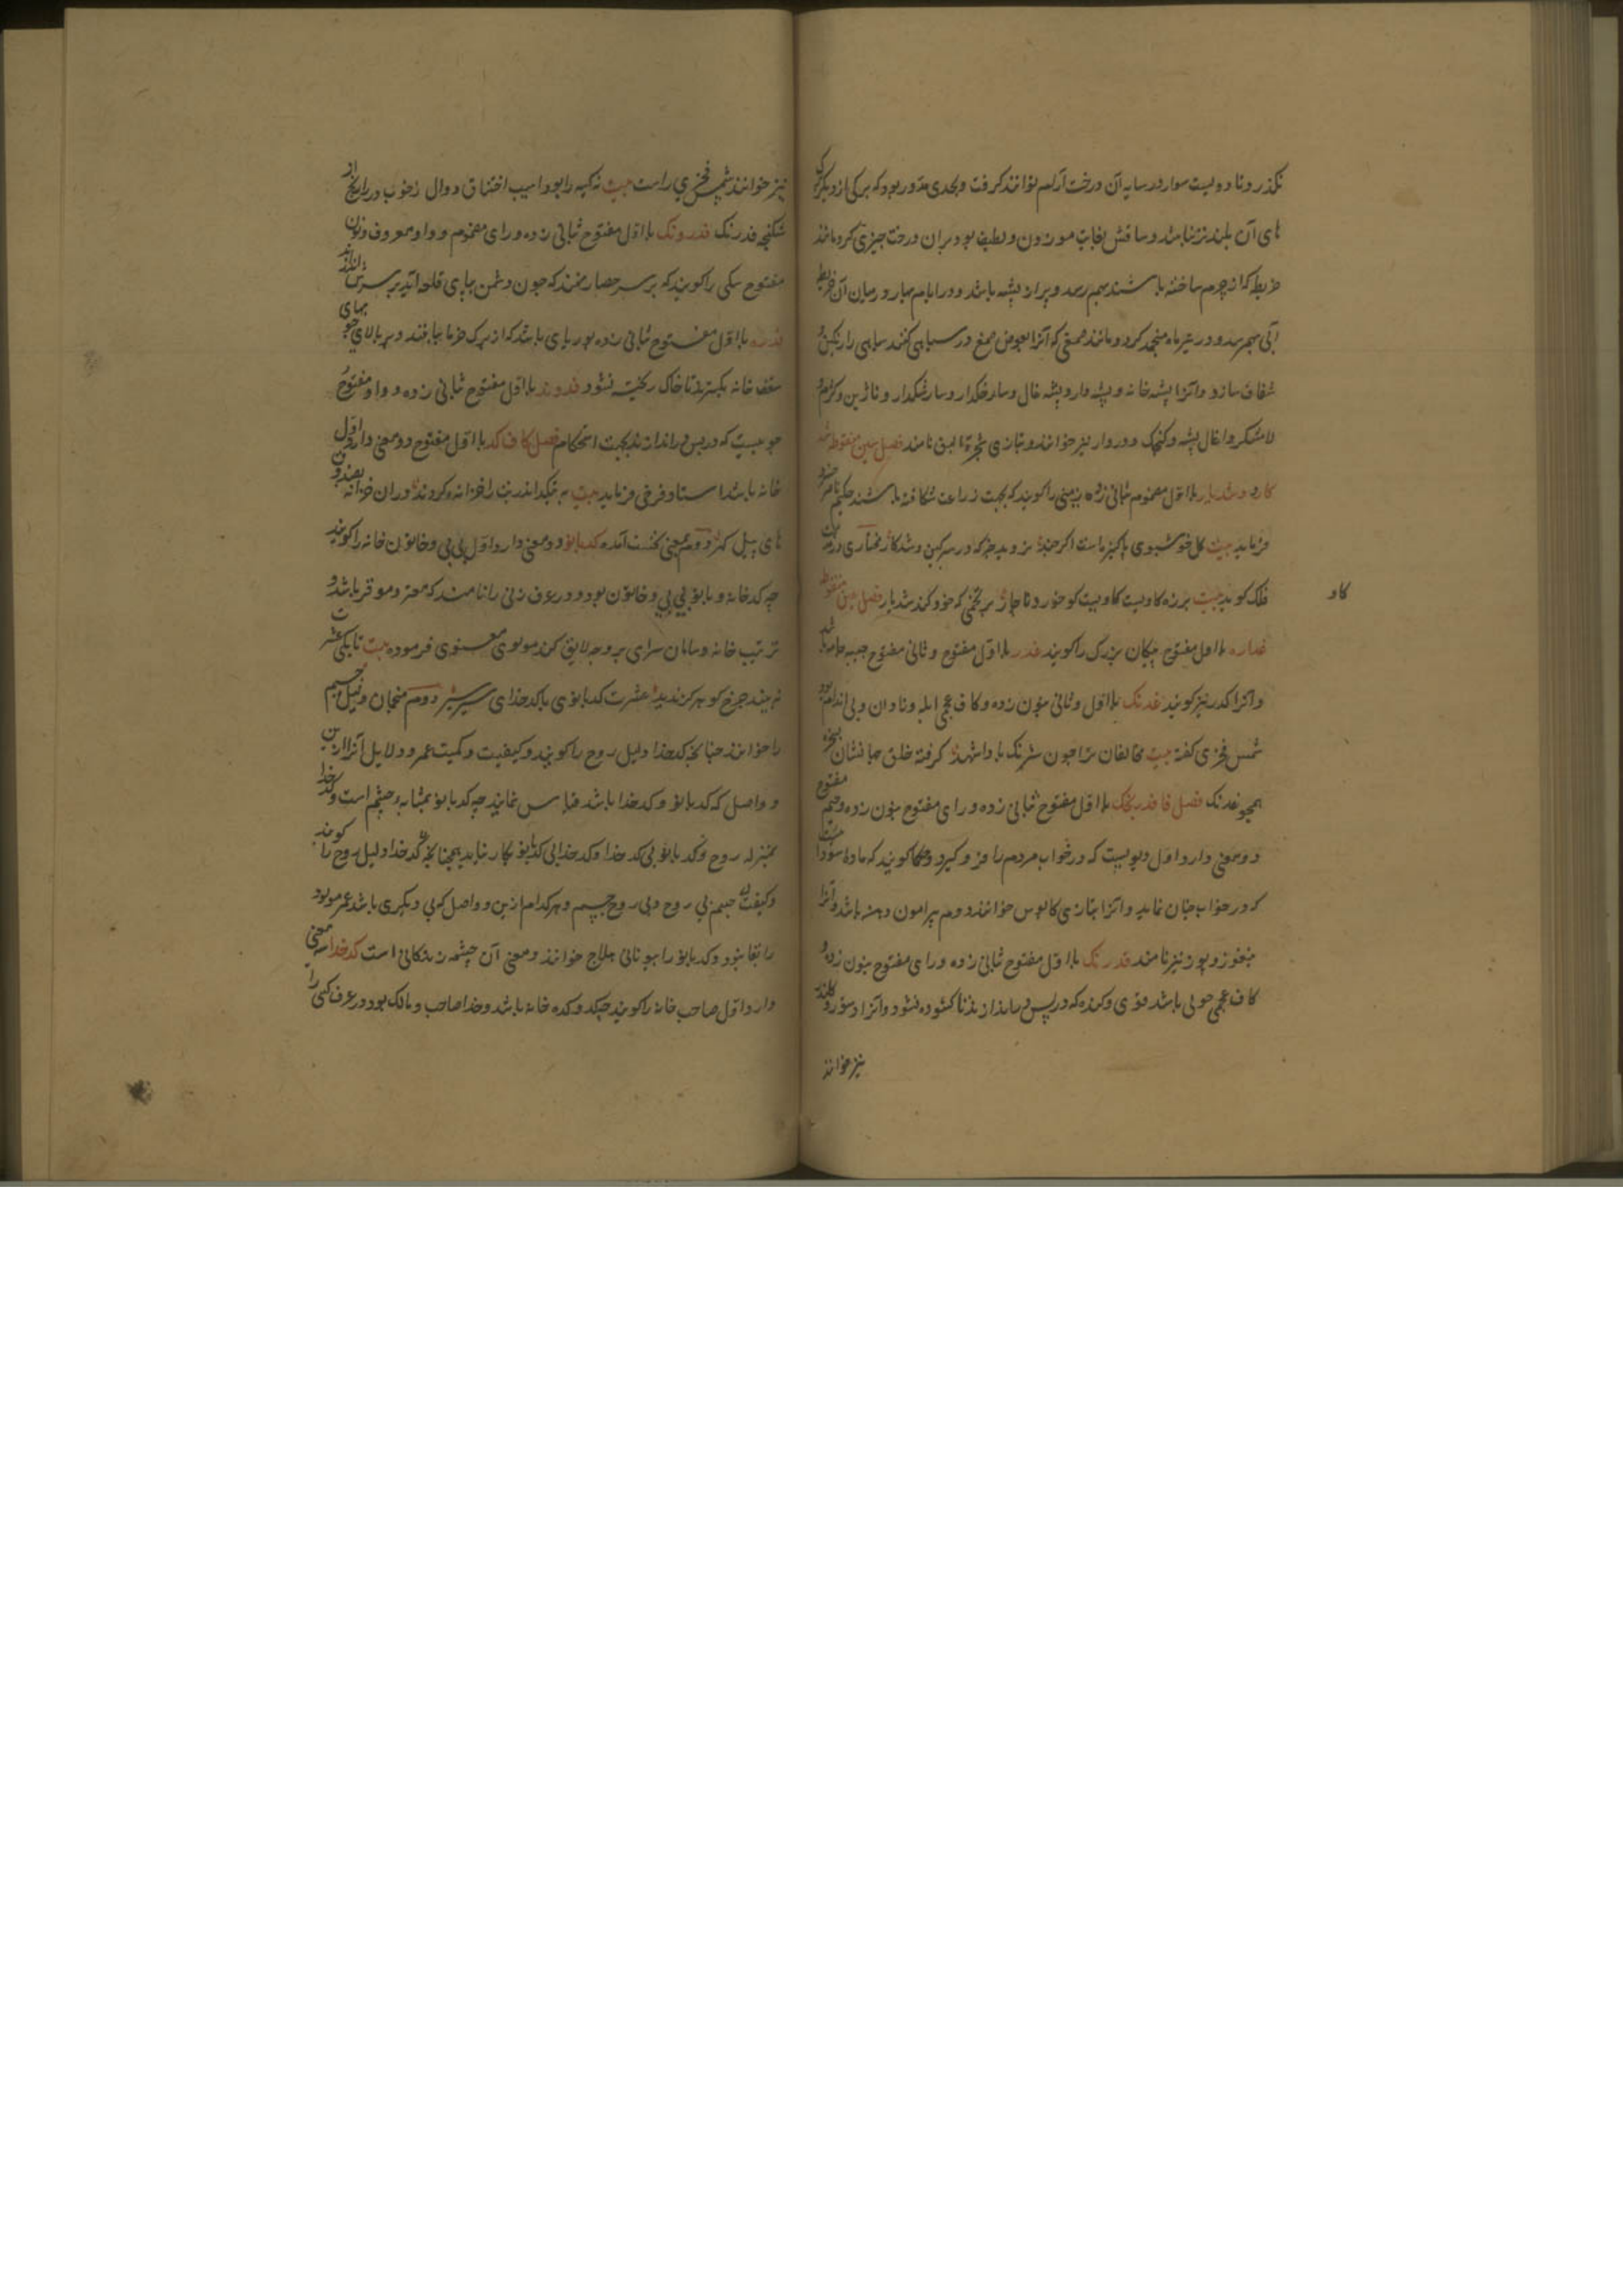 نگذرد و تا دویست سوار در سایه آن درخت آرام توانند گرفت و بحدی مدور بود که برکی از دیگر برکی
های آن بلندتر نباشد و ساقش بغایت موزون و لطیف بود بران درخت چیزی گرد مانند
خریطه که از چرم ساخته باشند بهم رسد و پر از پشه باشد و در ایام بهار در میان آن خریطه
آبی بهم رسد و در تیر ماه منجمد گردد مانند صمغی که آنرا بعوض صمغ در سیاهی کنند سیاهی را رنگین و
شفاف سازد و آنرا پشه خانه و پشه دار و پشه غال و سارخکدار و سارشکدار و ناژین و کژم و
لامشکر و اغال پشه و کنجک و دردار نیز خوانند و بتازی شجرة البق نامند فصل شین منقوطه
شدکار و شدیار با اول مضموم بثانی زده زمینی را گویند که بجهت زراعت شکافته باشند حکیم ناصر خسرو
فرماید بیت گل خوشبوی پاکیزه است اگر چند نروید جز که در سرگین و شدکار مختاری در
فلک گوید بیت برزه گاویست گاویست کو خورد ناچار بر تخمی که خود کند شدیار فصل غین منقوطه
غداره با اول مفتوح پیکان بزرگ را گویند غدر با اول مفتوح و ثانی مفتوح جیبه جامه باشد
و آنرا کدر نیز گویند غدنک با اول و ثانی بنون زده و کاف عجمی ابله و نادان و بی اندام بود
شمس فخری گفته بیت مخالفان ترا چون شرنک باد شهد گرفته خلق جهانشان بسخره
همچو غدنک فصل فا فدرنجک با اول مفتوح بثانی زده و رای مفتوح بنون زده و جیم مفتوح
دو معنی دارد اول دیویست که در خواب مردم را فرو گیرد و حکما گویند که ماده سوداست
که در خواب چنان نماید و آنرا بتازی کابوس خوانند دوم پیرامون دهن باشد و آنرا
بتفوز و پوز نیز نامند فدرنک با اول مفتوح بثانی زده و رای مفتوح بنون زده و
کاف عجمی چوبی باشد قوی و گنده که در پس در اندازند تا گشوده نشود و آنرا
نیز خوانند
گاو
نیز خوانند شمس فخری راست بیت نه کیه را بود آسیب اختناق دوال نه خوب در را رنج از
شکنجه فدرنک فدرونک با اول مفتوح بثانی زده و رای مضموم و واو معروف و نون
مفتوح سنگی را گویند که بر سر حصار نهند که چون دشمن بپای قلعه آید بر سرش اندازند
فدره با اول مفتوح ثانی زده بوریای باشد که از برک خرما ببافند و بر بالای چوبهای
سقف خانه بگسترند تا خاک ریخته نشود فدوند با اول مفتوح ثانی زده و واو مفتوح
چوبیست که در پس در اندازند بجهت استحکام فصل کاف کد با اول مفتوح دو معنی دارد اول
خانه باشد استاد فرخی فرماید بیت
های پیل دوم بمعنی نخست آمده کدبانو دو معنی دارد اول بی بی و خاتون خانه را گویند
چه کد خانه و بانو بی بی و خاتون بود و در عرف زنی را نامند که معتبر و موقر باشد و
ترتیب خانه و سامان سرای بر وجه لایق کند مولوی معنوی فرموده بیت
نه بیند چرخ کدبانوی با کدخدای دوم منجمان دلیل جسم
را خوانند چنانکه کدخدا دلیل روح را گویند و کیفیت و کمیت عمر و دلایل آنرا ازین
دو اصل که کدبانو و کدخدا باشد قیاس نمایند چه کدبانو بمثابه جسم است و کدخدا
بمنزله روح و کدبانوی بی کدخدا و کدخدای بی کدبانو بکار نیاید همچنانکه کدخدا دلیل روح را گویند
و کیفیت جسم بی روح و بی روح جسم و هر کدام ازین دو اصل که بی دیگری باشد عمر مولود
را بقا نبود و کدبانو را بیونانی هیلاج خوانند و معنی آن چشمه زندگانی است کدخدا سه معنی
دارد اول صاحب خانه را گویند چه کد و کده خانه باشد و خدا صاحب و مالک بود و در عرف کسی را